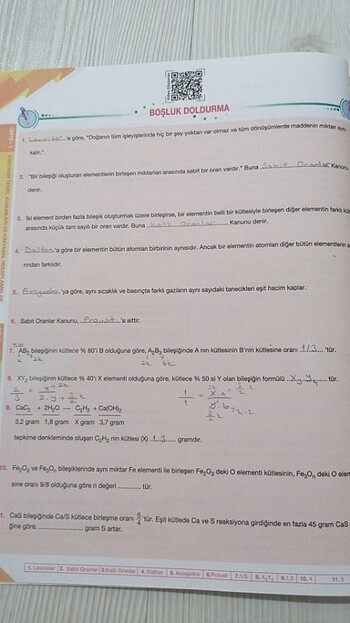 BOŞLUK DOLDURMA
1. Lavoisier 'e göre, "Doğanın tüm işleyişlerinde hiç bir şey yoktan var olmaz ve tüm dönüşümlerde maddenin miktarı aynı
kalır."
2. "Bir bileşiği oluşturan elementlerin birleşen miktarları arasında sabit bir oran vardır." Buna Sabit Oranlar Kanunu
denir.
3. İki element birden fazla bileşik oluşturmak üzere birleşirse, bir elementin belli bir kütlesiyle birleşen diğer elementin farklı
arasında küçük tam sayılı bir oran vardır. Buna Katlı Oranlar Kanunu denir.
4. Dalton 'a göre bir elementin bütün atomları birbirinin aynısıdır. Ancak bir elementin atomları diğer bütün elementlerin
rından farklıdır.
5. Avogadro 'ya göre, aynı sıcaklık ve basınçta farklı gazların aynı sayıdaki tanecikleri eşit hacim kaplar.
6. Sabit Oranlar Kanunu, Proust 'a aittir.
7. AB₂ bileşiğinin kütlece % 80'i B olduğuna göre, A₂B₃ bileşiğinde A nın kütlesinin B'nin kütlesine oranı 1/3 'tür.
8. XY₂ bileşiğinin kütlece % 40'ı X elementi olduğuna göre, kütlece % 50 si Y olan bileşiğin formülü tür.
9. CaC₂ + 2H₂O → C₂H₂ + Ca(OH)₂
3,2 gram 1,8 gram X gram 3,7 gram
tepkime denkleminde oluşan C₂H₂ nin kütlesi (X) 1.3 gramdır.
10. Fe₂O₃ ve Fe₃Oₙ bileşiklerinde aynı miktar Fe elementi ile birleşen Fe₂O₃ deki O elementi kütlesinin, Fe₃Oₙ deki O
sine oranı 9/8 olduğuna göre n değeri tür.
CaS bileşiğinde Ca/S kütlece birleşme oranı 5/4 'tür. Eşit kütlede Ca ve S reaksiyona girdiğinde en fazla 45 gram CaS
ğine göre, gram S artar.
1. Lavoisier 2. Sabit Oranlar 3.Katlı Oranlar 4. Dalton 5. Avogadro 6.Proust 7.1/3 9.1,3 10.4